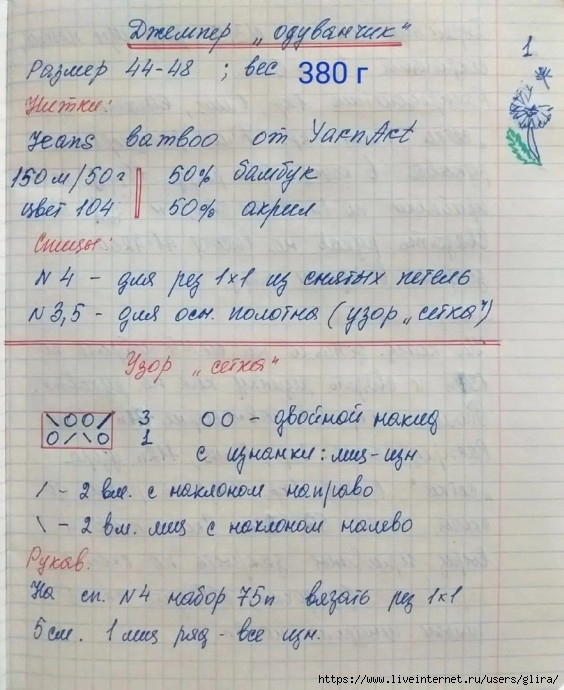 Джемпер „одуванчик"
1
Размер 44-48 ; вес 380 г
Нитки:
Jeans bamboo от YarnArt
150м/50г 50% бамбук
цвет 104 50% акрил
Спицы:
N 4 - для рез 1×1 из снятых петель
N 3,5 - для осн. полотна (узор „сетка")
Узор „сетка"
\OO/ 3 OO - двойной накид
O/\O 1
с изнанки: лиц-изн
/ - 2 вм. с наклоном направо
\ - 2 вм. лиц с наклоном налево
Рукав.
На сп. N4 набор 75п вязать рез 1×1
5 см. 1 лиц ряд - все изн.
https://www.liveinternet.ru/users/glira/